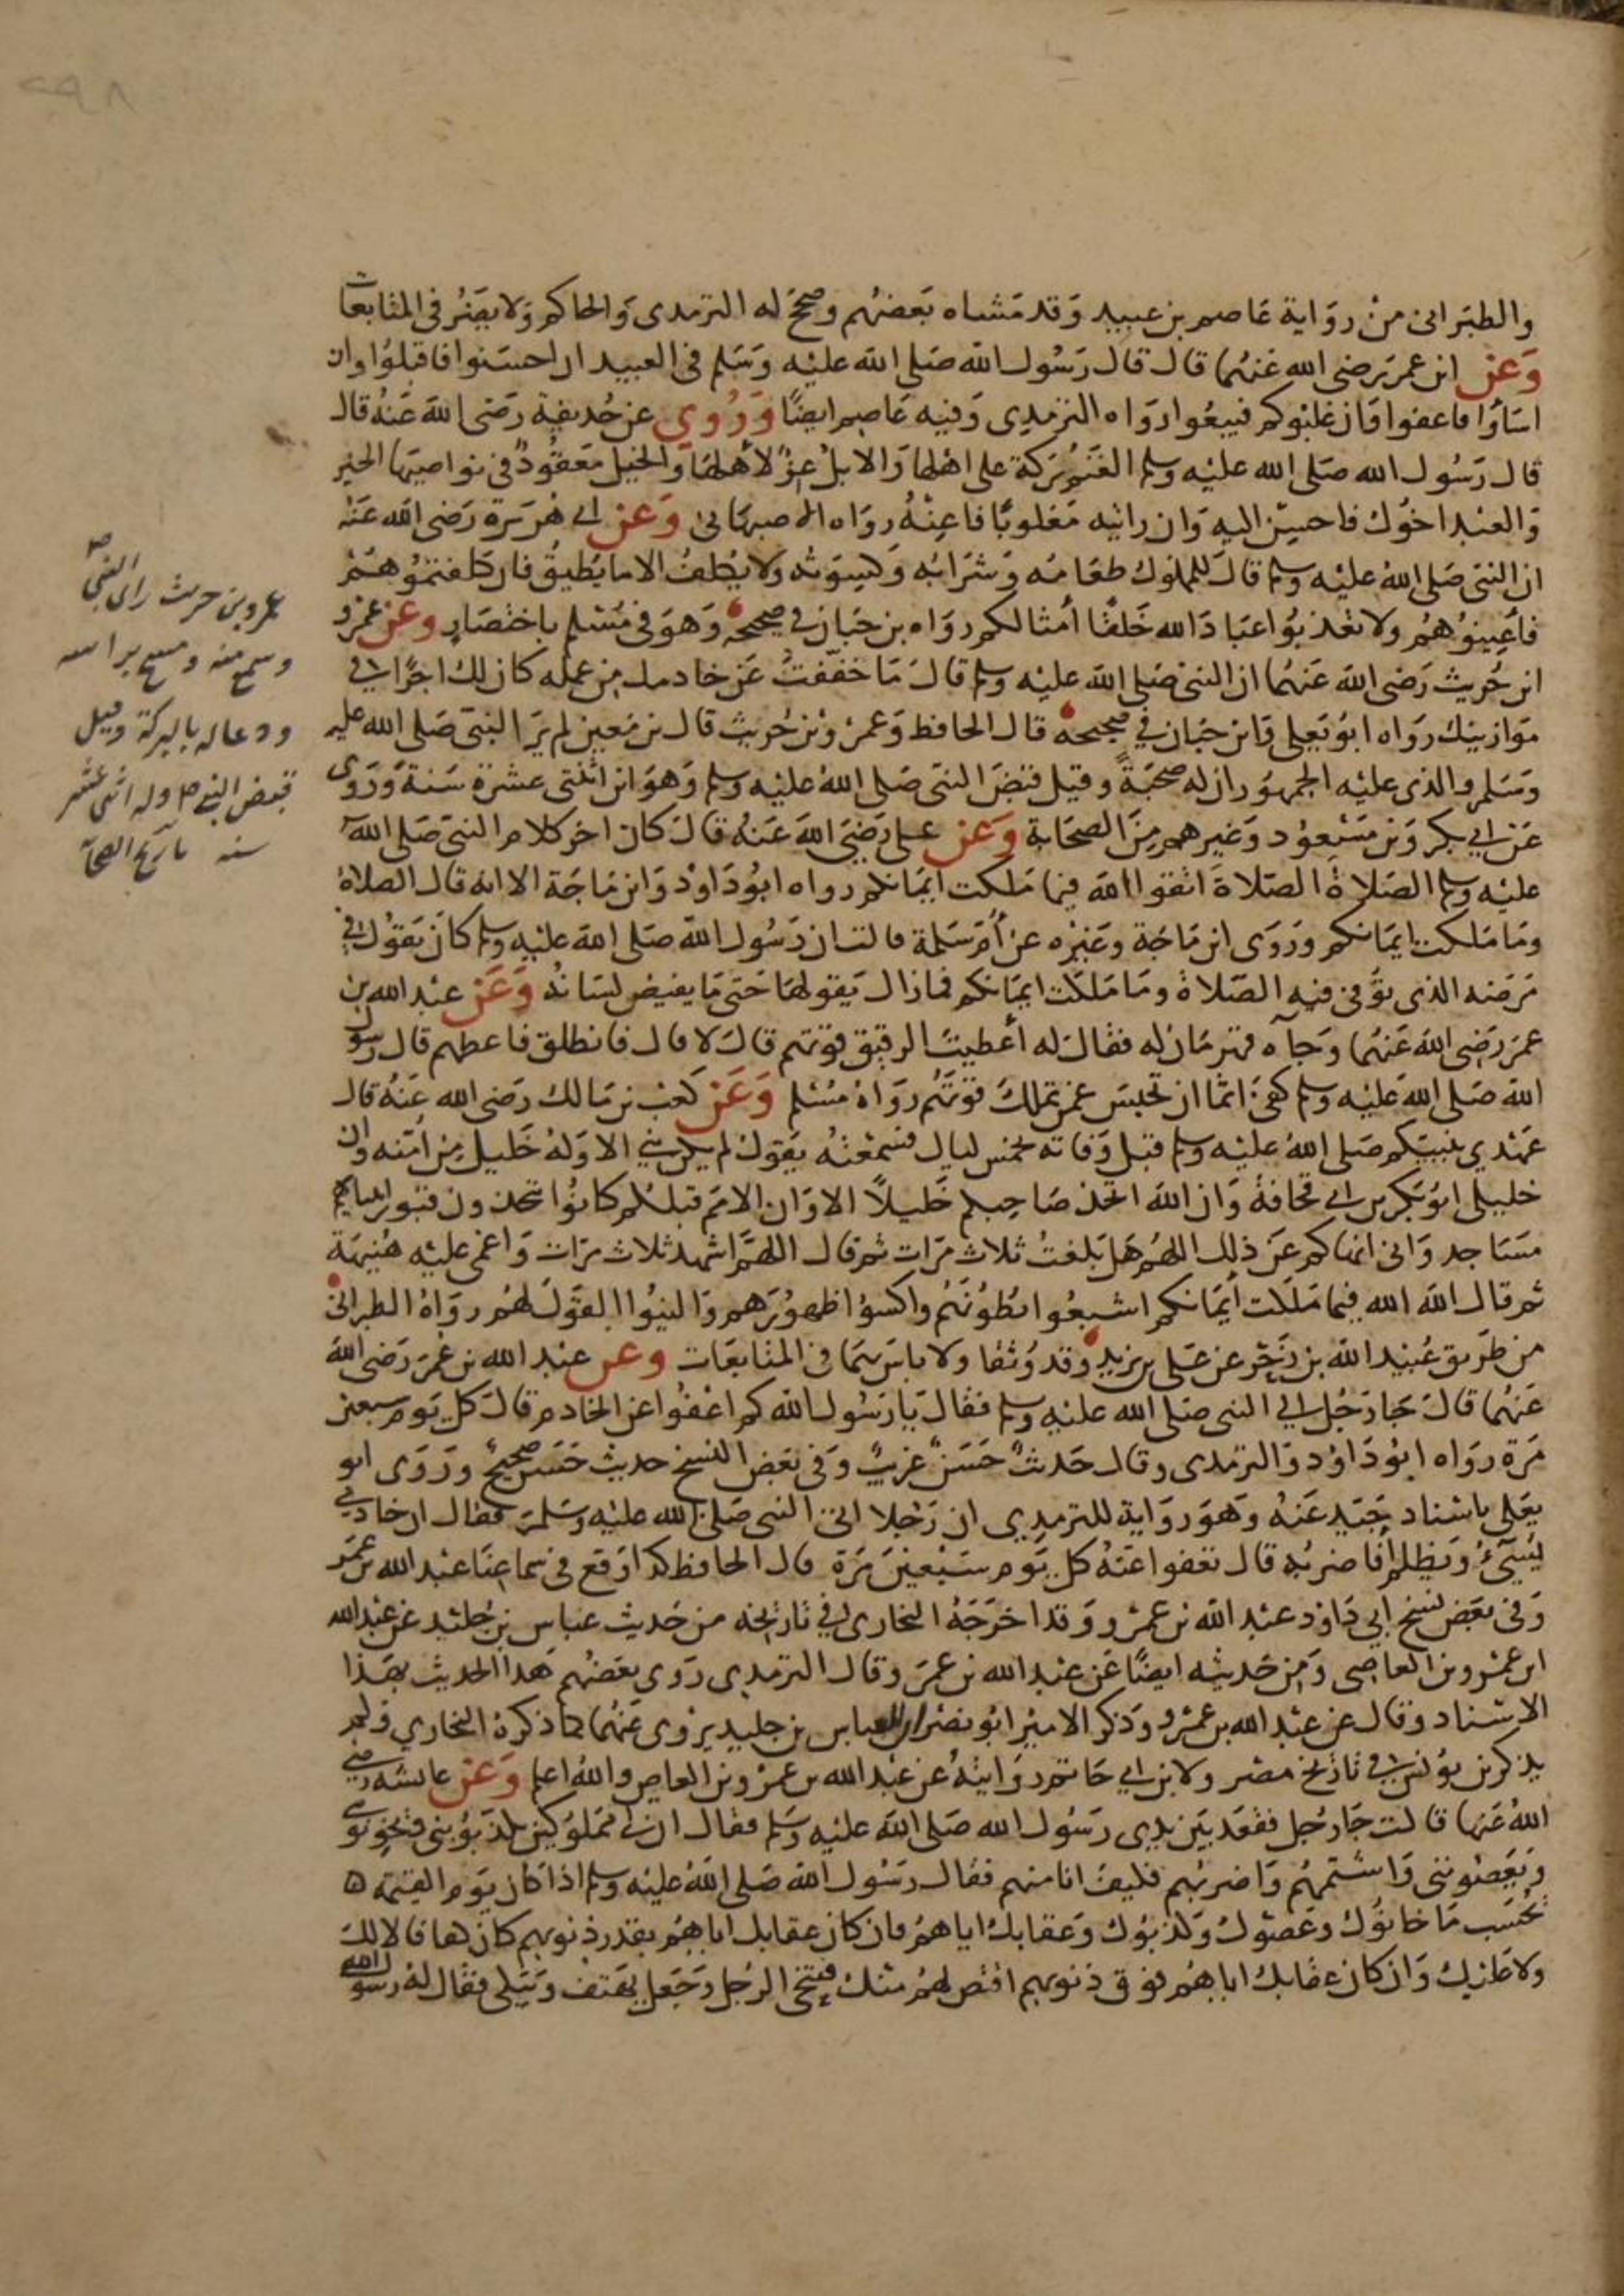 ٢٩٨
والطبراني من رواية عاصم بن عبيد وقد مشاه بعضهم وصحح له الترمدى والحاكم ولا يضر في المتابعات
وعن ابن عمر رضى الله عنهما قال قال رسول الله صلى الله عليه وسلم في العبيد ان احسنوا فاقبلوا وان
اساؤا فاعفوا وان غلبوكم فبيعوا رواه الترمدى وفيه عاصم ايضًا وروي عن حديفة رضى الله عنه قال
قال رسول الله صلى الله عليه وسلم الغنم بركة على اهلها والابل عز لأهلها والخيل معقود في نواصيها الخير
والعبد اخوك فاحسن اليه وان رايته مغلوبًا فاعنه رواه الاصبهاني وعن ابي هريرة رضى الله عنه
ان النبى صلى الله عليه وسلم قال للمملوك طعامه وشرابه وكسوته ولا يكلف الا ما يطيق فان كلفتموهم
فأعينوهم ولا تعذبوا عباد الله خلقًا أمثالكم رواه بن حبان في صحيحه وهو في مسلم باختصار وعن عمرو
ابن حريث رضى الله عنهما ان النبى صلى الله عليه وسلم قال ما خففت عن خادمك من عمله كان لك اجرًا في
موازينك رواه ابو يعلى وابن حبان في صحيحه قال الحافظ وعمرو بن حريث قال بن معين لم ير النبى صلى الله عليه
وسلم والذى عليه الجمهور ان له صحبةً وقيل قبض النبى صلى الله عليه وسلم وهو ابن اثنتى عشرة سنة وروى
عن ابي بكر وبن مسعود وغيرهم من الصحابة وعن على رضي الله عنه قال كان اخر كلام النبى صلى الله
عليه وسلم الصلاة الصلاة اتقوا الله فيما ملكت ايمانكم رواه ابو داود وابن ماجة الا انه قال الصلاة
وما ملكت ايمانكم وروى ابن ماجة وغيره عن أم سلمة قالت ان رسول الله صلى الله عليه وسلم كان يقول في
مرضه الذى توفى فيه الصلاة وما ملكت ايمانكم فمازال يقولها حتى ما يفيض لسانه وعن عبد الله بن
عمر رضى الله عنهما وجآه قهرمان له فقال له أعطيت الرقيق قوتهم قال لا قال فانطلق فاعطهم قال رسول
الله صلى الله عليه وسلم كفى اثما ان تحبس عمن تملك قوتهم رواه مسلم وعن كعب بن مالك رضى الله عنه قال
عهدي بنبيكم صلى الله عليه وسلم قبل وفاته بخمس ليال فسمعته يقول لم يكن نبي الا وله خليل من امته وان
خليلى ابو بكر بن ابي قحافة وان الله اتخذ صاحبكم خليلًا الا وان الامم قبلكم كانوا يتخدون قبور انبيايهم
مساجد وانى انهاكم عن ذلك اللهم هل بلغت ثلاث مرات ثم قال اللهم اشهد ثلاث مرات واغمى عليه هنيهة
ثم قال الله الله فيما ملكت أيمانكم اشبعوا بطونهم واكسوا ظهورهم والينوا القول لهم رواه الطبرانى
من طريق عبيد الله بن زحر عن على بن يزيد وقد وثقا ولا باس بهما في المتابعات وعن عبد الله بن عمر رضى الله
عنهما قال جا رجل الى النبى صلى الله عليه وسلم فقال يا رسول الله كم اعفوا عن الخادم قال كل يوم سبعين
مرة رواه ابو داود والترمدى وقال حديث حسن غريب وفى بعض النسخ حديث حسن صحيح وروى ابو
يعلى باسناد جيد عنه وهو رواية للترمدى ان رجلا اتى النبى صلى الله عليه وسلم فقال ان خادمي
يسيء ويظلم أفاضربه قال تعفوا عنه كل يوم سبعين مرة قال الحافظ كدا وقع في سماعنا عبد الله بن عمر
وفى بعض نسخ ابي داود عبد الله بن عمرو وقد اخرجه البخارى في تاريخه من حديث عباس بن جليد عن عبد الله
ابن عمرو بن العاصى ومن حديثه ايضًا عن عبد الله بن عمر وقال الترمدى روى بعضهم هدا الحديث بهذا
الاسناد وقال عن عبد الله بن عمرو وذكر الامير ابو نصر ان العباس بن جليد يروى عنهما كما ذكره البخاري ولم
يذكر بن يونس في تاريخ مصر ولا بن ابي حاتم روايته عن عبد الله بن عمرو بن العاص والله اعلم وعن عائشة رضي
الله عنها قالت جا رجل فقعد بين يدى رسول الله صلى الله عليه وسلم فقال ان لي مملوكين يكذبونى ويخونوني
ويعصوننى واشتمهم واضربهم فكيف انا منهم فقال رسول الله صلى الله عليه وسلم اذا كان يوم القيمة
يحسب ما خانوك وعصوك وكذبوك وعقابك اياهم فان كان عقابك اياهم بقدر ذنوبهم كان كفافا لا لك
ولا عليك وان كان عقابك اياهم فوق ذنوبهم اقتص لهم منك فتنحى الرجل وجعل يهتف ويبكى فقال له رسول الله
عمرو بن حريث راى النبي صم
وسمع منه ومسح براسه
ودعا له بالبركة وقيل
قبض النبي ص وله اثنى عشر
سنه تاريخ الصحابة